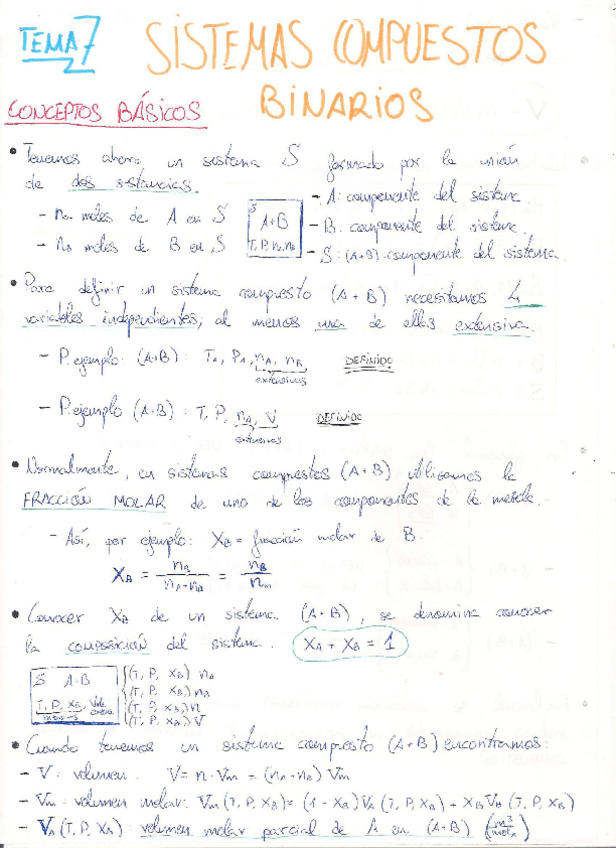 TEMA 7 SISTEMAS COMPUESTOS
BINARIOS
CONCEPTOS BÁSICOS
• Tenemos ahora un sistema S formado por la unión
de dos sustancias.
- nA moles de A en S
- nB moles de B en S
S
A+B
T, P, nA, nB
- A: componente del sistema
- B: componente del sistema.
- S: (A+B) componente del sistema.
• Para definir un sistema compuesto (A+B) necesitamos 4
variables independientes; al menos una de ellas extensiva.
- P. ejemplo: (A+B): TA, PA, nA, nB, DEFINIDO
extensivas
- P. ejemplo (A+B): T, P, nA, V DEFINIDO
extensivas
• Normalmente, en sistemas compuestos (A+B) utilizamos la
FRACCIÓN MOLAR de uno de los componentes de la mezcla.
- Así, por ejemplo: XB = fracción molar de B.
XB = nB / (nA+nB) = nB / nm
• Conocer XB de un sistema (A+B), se denomina conocer
la composición del sistema. XA + XB = 1
S A+B
T, P, XB,
(T, P, XB) nA
(T, P, XB) nB
(T, P, XB) n
(T, P, XB) V
• Cuando tenemos un sistema compuesto (A+B) encontramos:
- V: volumen. V = n · Vm = (nA + nB) Vm
- Vm: volumen molar: Vm (T, P, XB) = (1 - XB) VA (T, P, XB) + XB VB (T, P, XB)
- VA (T, P, XB): volumen molar parcial de A en (A+B) (m3/mol A)